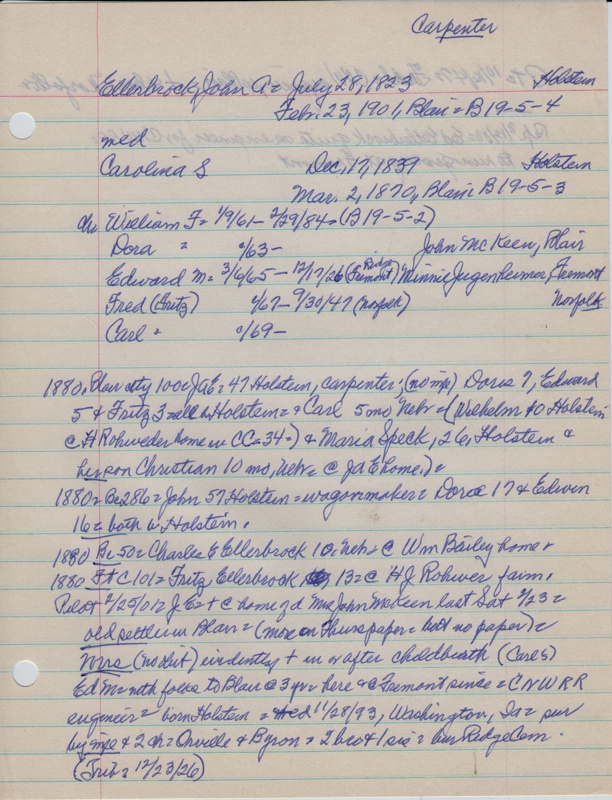 Carpenter
Ellerbrock, John A = July 28, 1823 Holstein
Feb. 23, 1901, Blair = B 19-5-4
med
Carolina S Dec. 17, 1839 Holstein
Mar. 2, 1870, Blair B 19-5-3
ch William F = 1/9/61 - 2/29/84 = (B 19-5-2)
Dora = /63 - John McKeen, Blair
Edward M = 3/6/65 - 12/17/26 (Fremont) Ridge Minnie Jugenheimer, Fremont
Fred (Fritz) /67 - 9/30/47 (Norfolk) Norfolk
Carl = /69 -
1880, Blair city 100 = JAE = 47 Holstein, carpenter; Doris 7, Edward
5 & Fritz 3 = all in Holstein = & Carl 5 mo Neb = (Wilhelm 10 Holstein
@ H Rohweder home in CC = 34 =) & Maria Speck, 26, Holstein &
her son Christian 10 mo, Neb = @ JAE home.) =
1880 = Bc 286 = John 57 Holstein = wagonmaker = Dora 17 & Edwin
16 = both in Holstein.
1880 Bc 50 = Charles E Ellerbrock 10, Neb = @ Wm Bailey home &
1880 Ft C 101 = Fritz Ellerbrock 13 = @ H J Rohwer farm.
Pilot 2/25/01 = J E = + @ home of d Mrs John McKeen last Sat 2/23 =
old settler in Blair = (more on this paper = but no paper) =
Mrs (no obit) evidently + in or after childbirth (Carl's)
Ed M = with folks to Blair @ 3 yr = here & @ Fremont since = CNWRR
engineer = born Holstein = 11/28/93, Washington, Ia = sur
by & 2 ch = Orville & Byron = 2 bro & 1 sis = bur Ridge Cem.
(Trib = 12/23/26)